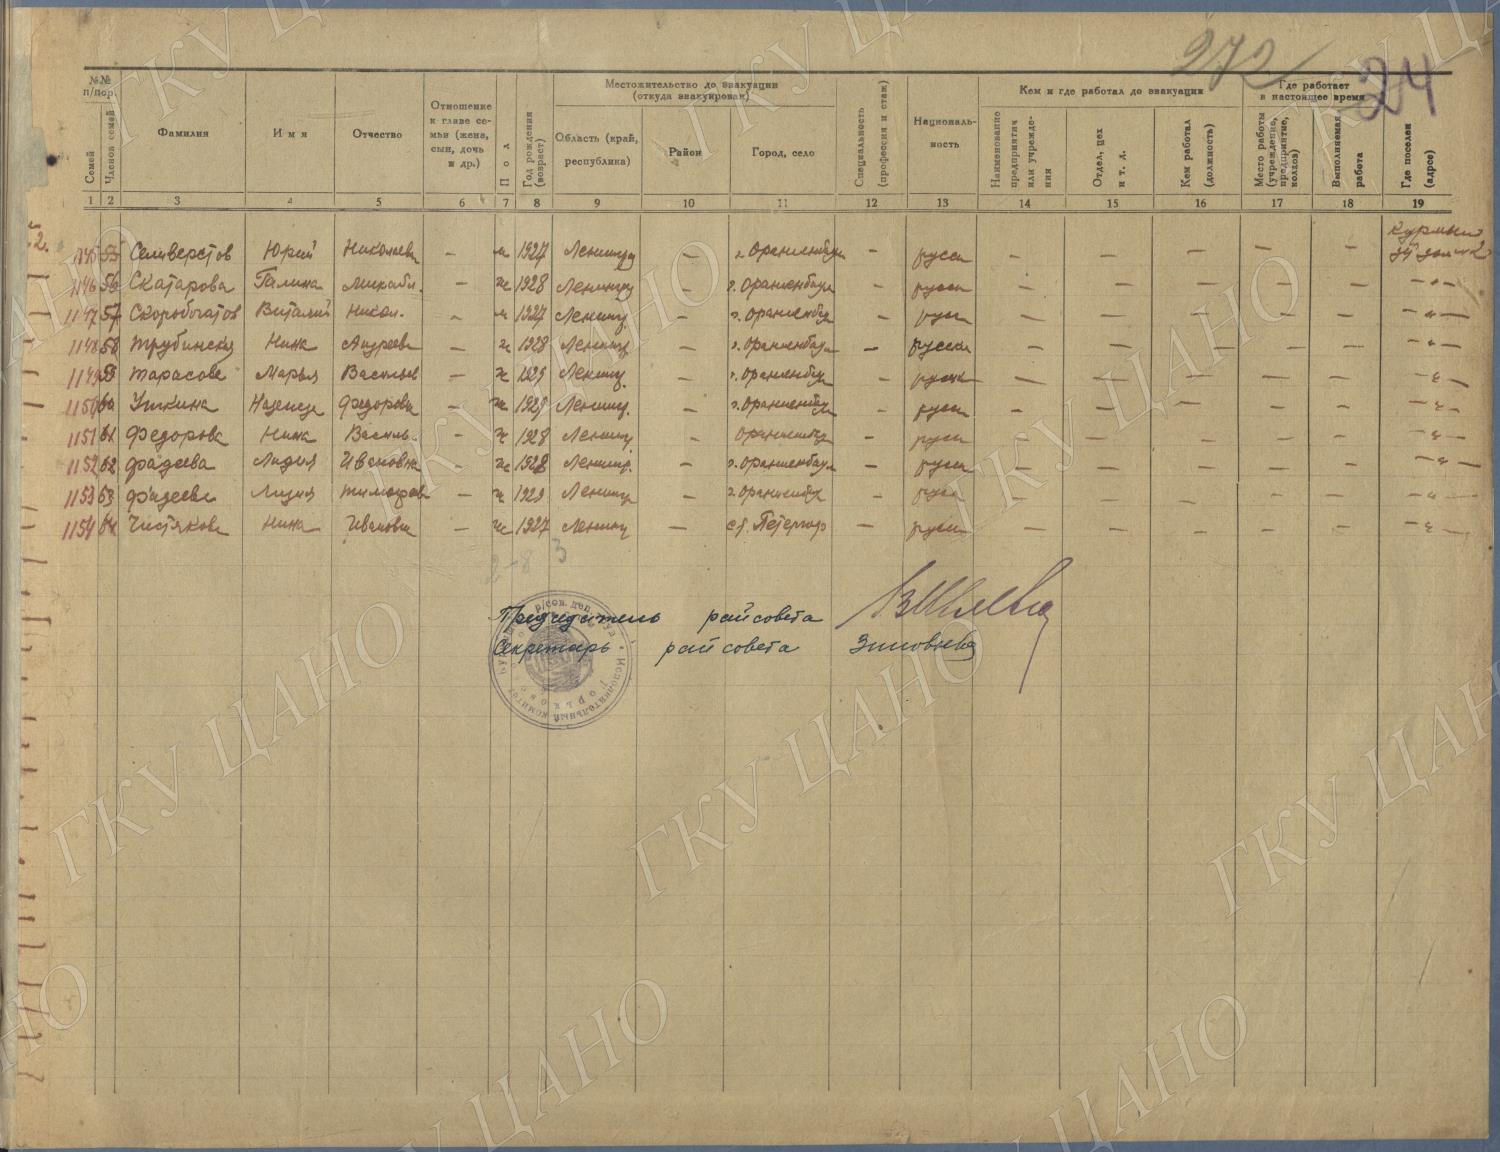 272
24
№№ п/пор.
Семей
Членов семей
Фамилия
Имя
Отчество
Отношение к главе семьи (жена, сын, дочь и др.)
Пол
Год рождения (возраст)
Местожительство до эвакуации (откуда эвакуирован)
Область (край, республика)
Район
Город, село
Специальность (профессия и стаж)
Националь-
ность
Кем и где работал до эвакуации
Наименование предприятия или учреждения
Отдел, цех и т. д.
Кем работал (должность)
Где работает в настоящее время
Место работы (учреждение, предприятие, колхоз)
Выполняемая работа
Где поселен (адрес)
1 2 3 4 5 6 7 8 9 10 11 12 13 14 15 16 17 18 19
1145 55 Селиверстов Юрий Николаев – м 1927 – г. Ораниенбаум – – – – – –
1146 56 Скатарова Галина Михайл. – ж 1928 – г. Ораниенбаум – – – – – – – " –
1147 57 Скоробогатов Виталий Никол. – м 1927 Ленингр. – – – – – – – – " –
1148 58 Трубинская Нина Андреевн – ж 1928 – г. Ораниенбаум – – – – – – – " –
1149 59 Тарасова Марья Васильев – ж 1929 Ленингр. – – – – – – – " –
1150 60 Уткина Надежда Федоровн – ж 1929 Ленингр. – – – – – – – " –
1151 61 Федорова Нина Василь. – ж 1928 Ленингр – – – – – – – " –
1152 62 Фадеева Лидия Ивановна – ж 1928 Ленингр. – г. Ораниенбаум – – – – – – – " –
1153 63 Фадеева Лидия Тимофеев – ж 1929 – – – – – – – – " –
1154 64 Чистякова Нина Ивановн – ж 1927 Ленингр – ст. Петергоф – – – – – – – " –
2-8 3
Председатель райсовета
Секретарь райсовета Зиновьева
Исполнительный комитет
ГКУ ЦАНО